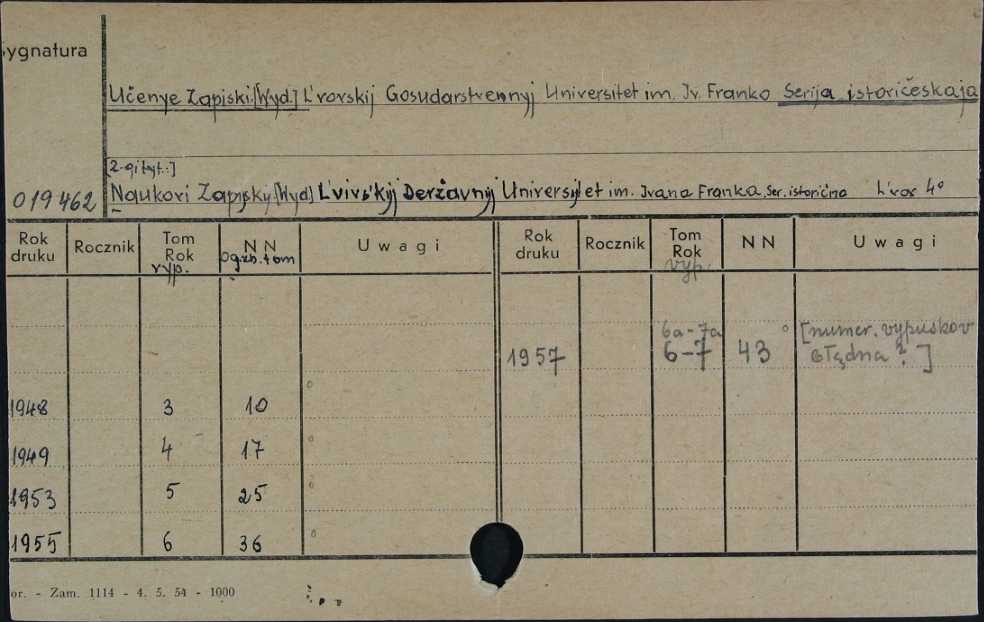 Sygnatura
Učenye Zapiski. [Wyd.] L'vovskij Gosudarstvennyj Universitet im. Iv. Franko Serija istoričeskaja
[2-gi tyt.:]
019462 Naukovi Zapysky. [Wyd.] L'vivs'kyj Deržavnyj Universytet im. Ivana Franka. Ser. istorična L'vov 4°
Rok druku Rocznik Tom Rok vyp. NN Ogrb. tom Uwagi Rok druku Rocznik Tom Rok vyp. NN Uwagi
6a-7a ° [numer. vypuskov
1957 6-7 43 błędna?]
1948 3 10 °
1949 4 17 °
1953 5 25 °
1955 6 36 °
or. - Zam. 1114 - 4. 5. 54 - 1000